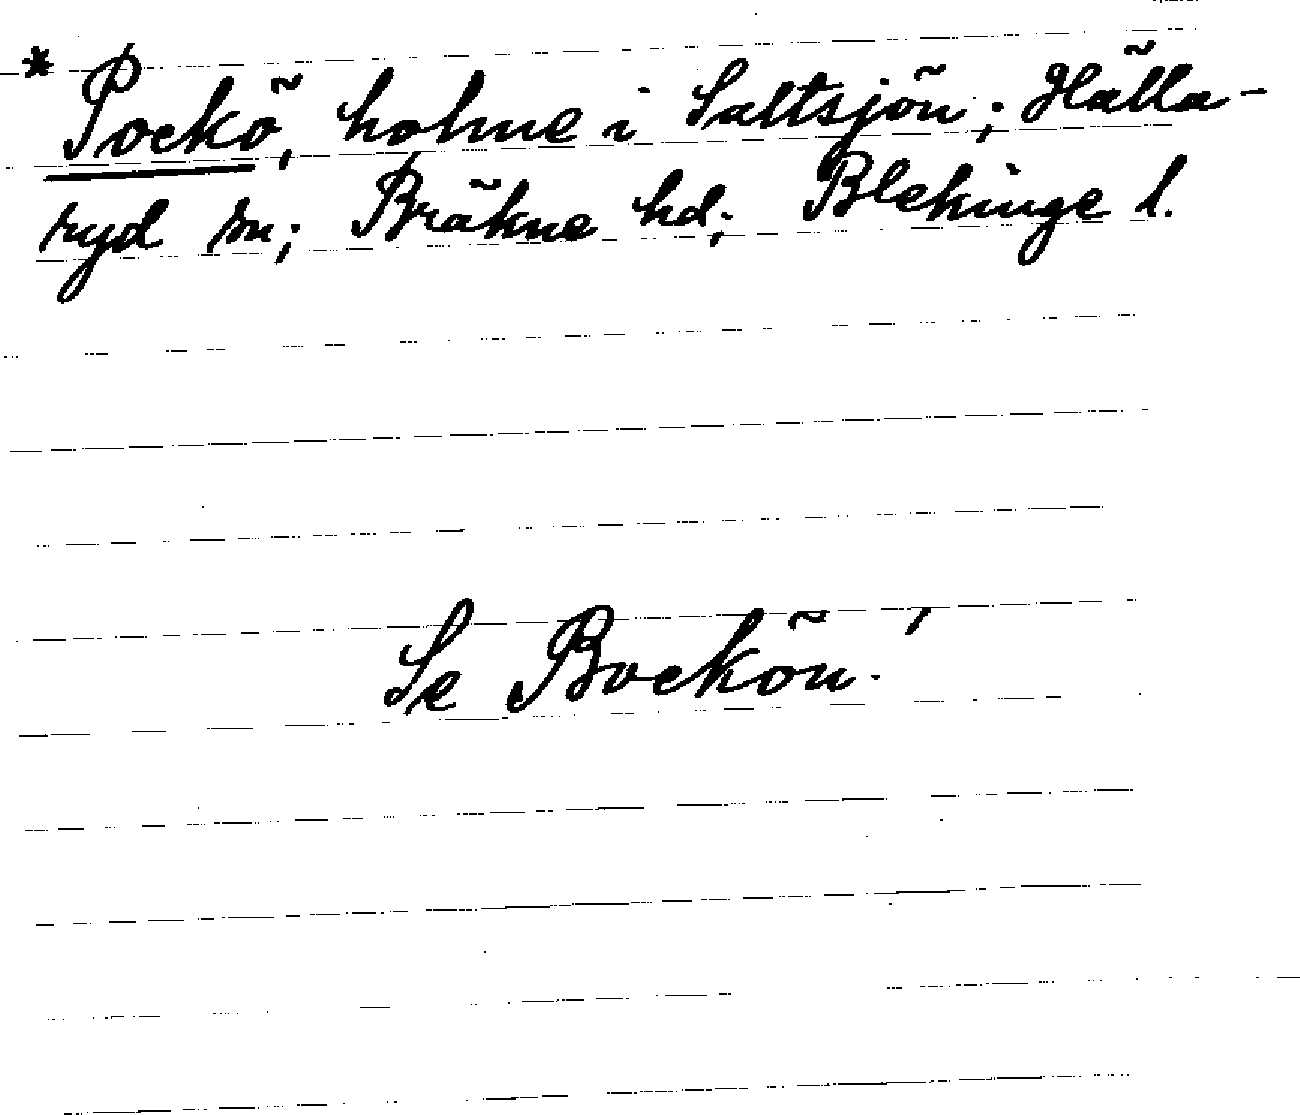 * Pockö, holme i Saltsjön; Hälla-
ryd sn; Bräkne hd; Blekinge l.
Se Bockön.